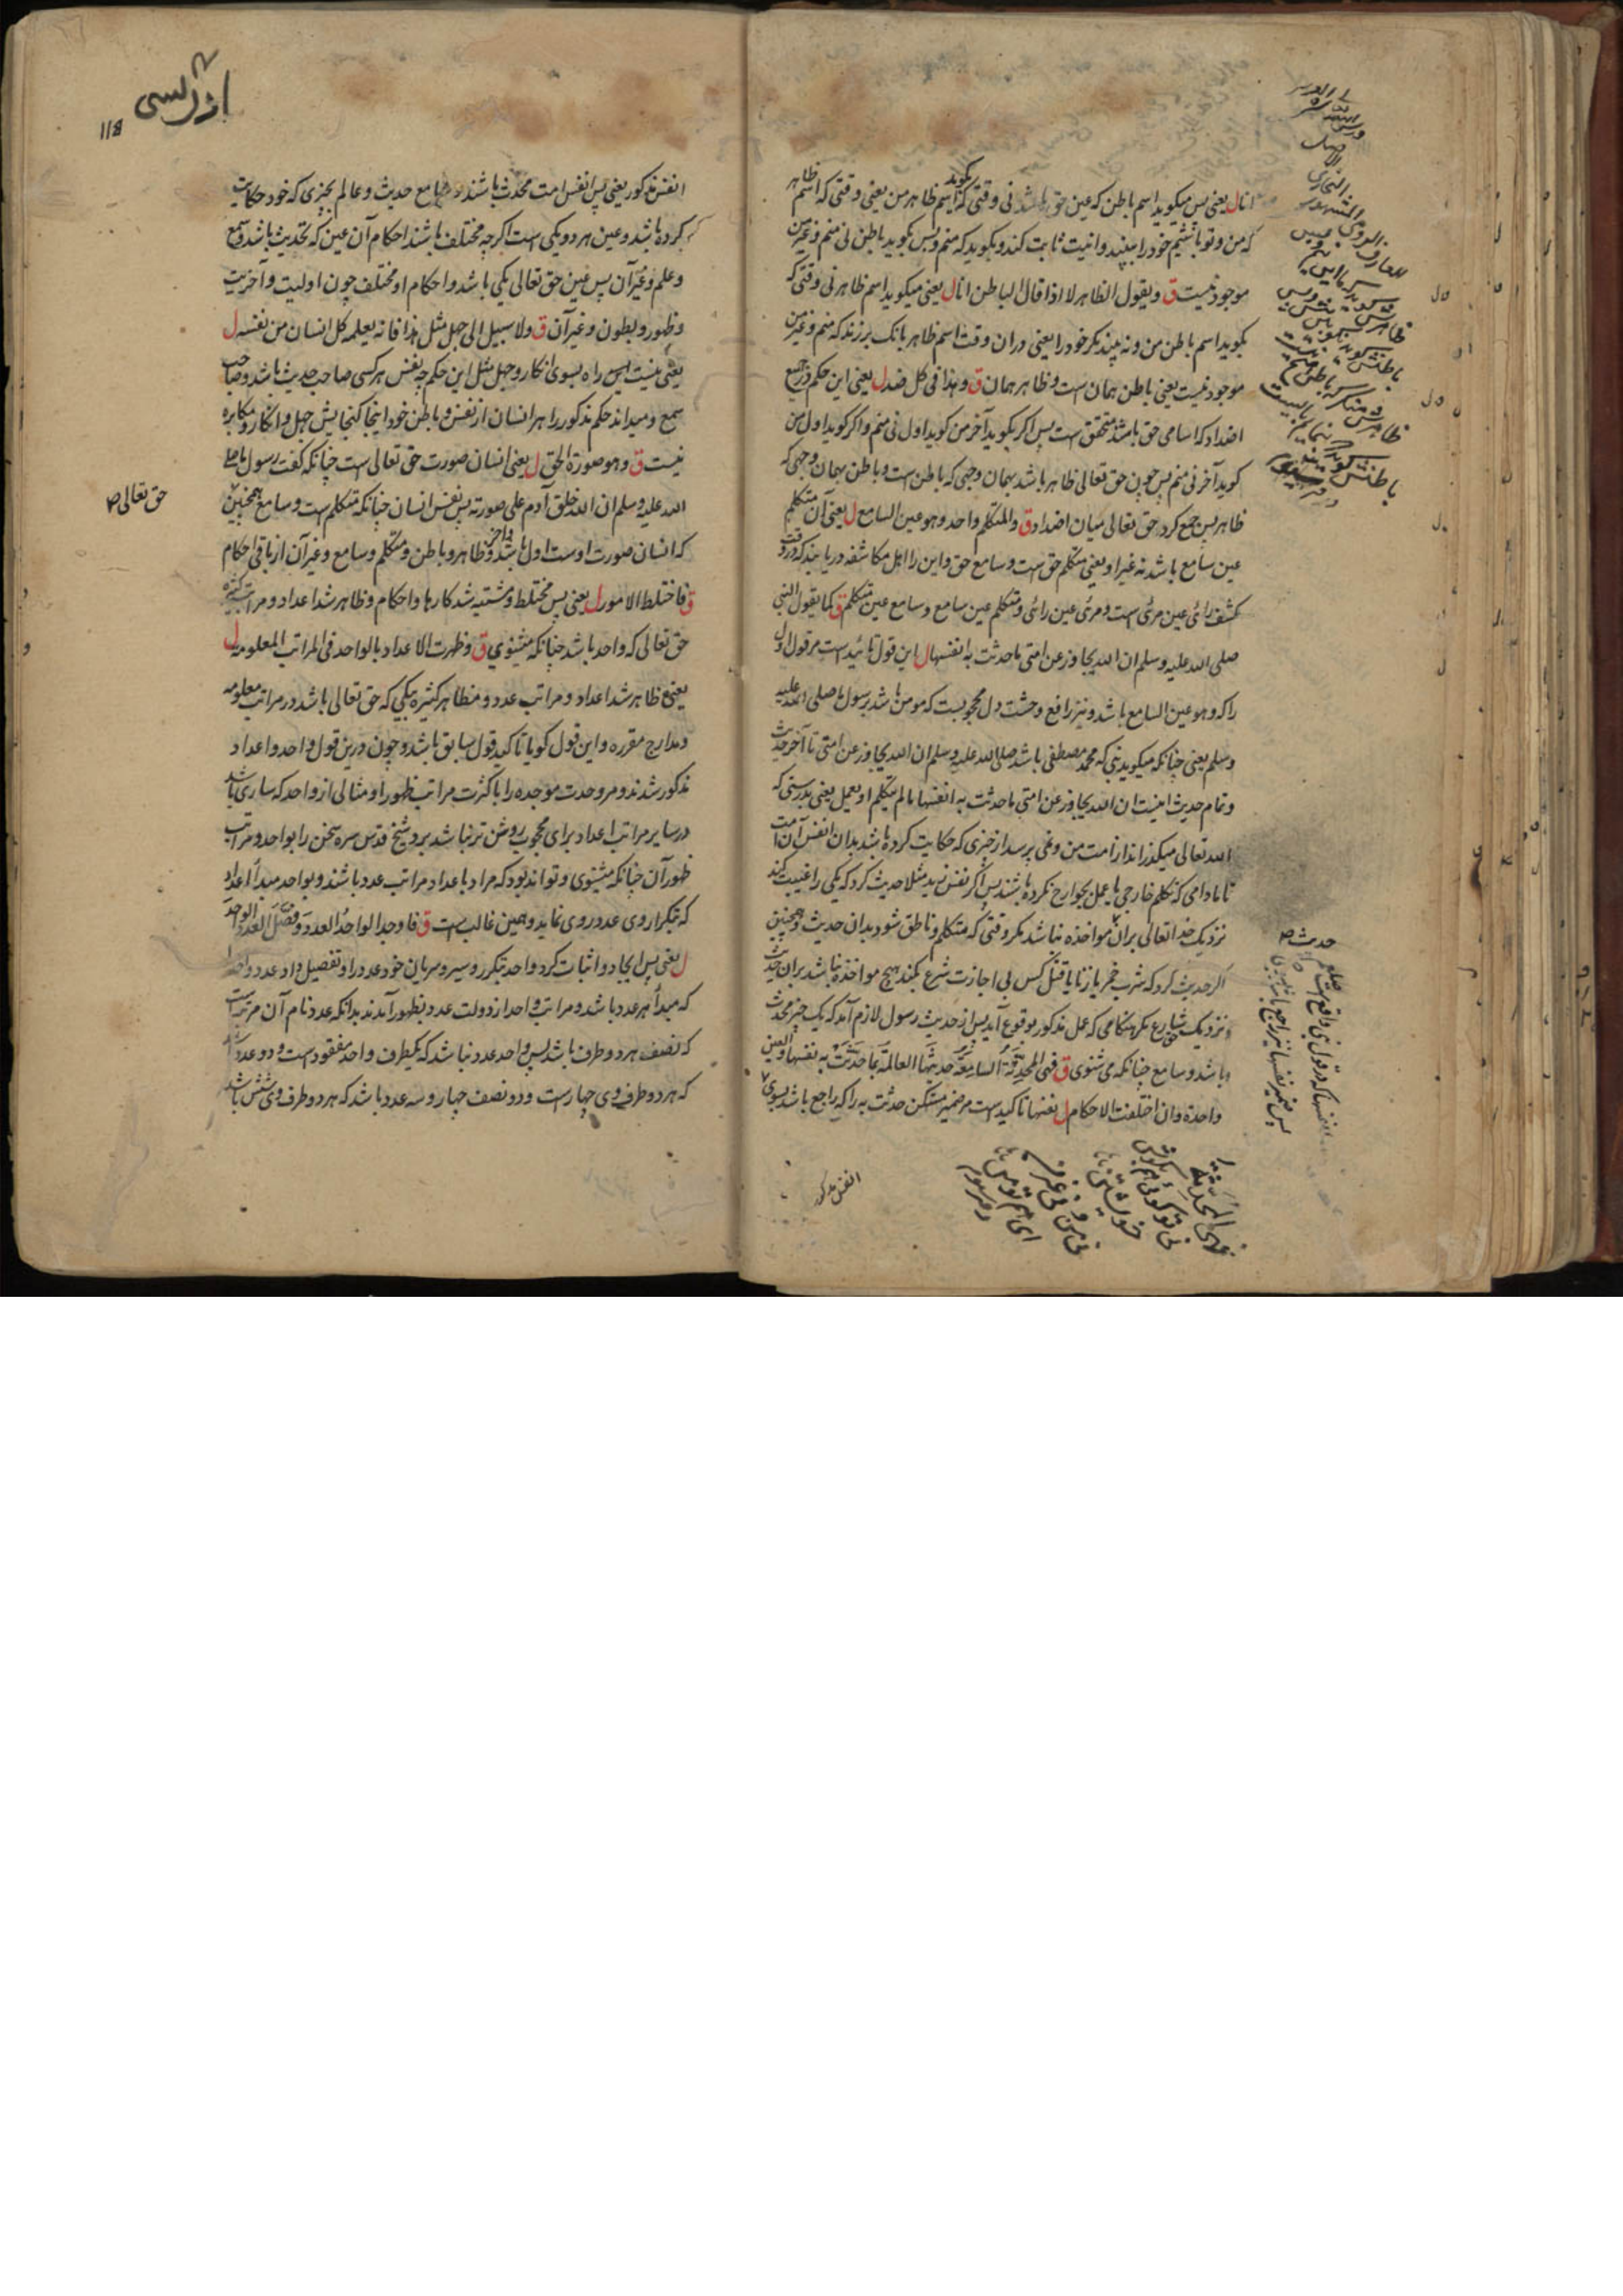 انا ل یعنی پس میکوید اسم باطن که عین حق باشد نی وقتی که کوید اسم ظاهر من یعنی وقتی که اسم ظاهر
که من و تو باشیم خود را ببیند و انیت ثابت کند و بکوید که منم و پس بکوید باطن نی منم و غیر من
موجود نیست ق و یقول الظاهر لا اذا قال الباطن انا ل یعنی میکوید اسم ظاهر نی وقتی که
بکوید اسم باطن من و نه بیند مکر خود را یعنی در ان وقت اسم ظاهر بانک برزند که منم و غیر من
موجود نیست یعنی باطن همان است و ظاهر همان ق و هذا فی کل ضد ل یعنی این حکم در جمیع
اضداد که اسامی حق باشند متحقق است پس اکر بکوید آخر من کوید اول نی منم و اکر کوید اول من
کوید آخر نی منم پس چون حق تعالی ظاهر باشد بهمان وجهی که باطن است و باطن بهمان وجهی که
ظاهر پس جمع کرد حق تعالی میان اضداد ق و المتکلم واحد و هو عین السامع ل یعنی آن متکلم
عین سامع باشد نه غیر او یعنی متکلم حق است و سامع حق و این را اهل مکاشفه دریابند که در وقت
کشف رائی عین مرئی است و مرئی عین رائی و متکلم عین سامع و سامع عین متکلم ق کما یقول النبی
صلی الله علیه وسلم ان الله تجاوز عن امتی ما حدثت به انفسها ل این قول تائید است مر قول اول
را که و هو عین السامع باشد و نیز رافع وحشت دل محجوبست که مومن باشد برسول ما صلی الله علیه
وسلم یعنی چنانکه میکوید نبی که محمد مصطفی باشد صلی الله علیه وسلم ان الله تجاوز عن امتی تا آخر حدیث
و تمام حدیث اینست ان الله تجاوز عن امتی ما حدثت به انفسها ما لم تتکلم او تعمل یعنی بدرستی که
الله تعالی میکذراند از امت من و نمی برسد از چیزی که حکایت کرده باشد بدان انفس آن امت
تا مادامی که تکلم خارجی یا عمل بجوارح نکرده باشند پس اکر نفس زید مثلا حدیث کرد که یکی را غیبت کند
نزدیک خدا تعالی بران مواخذه نباشد مکر وقتی که متکلم و ناطق شود بدان حدیث و همچنین
اکر حدیث کرد که شرب خمر یا زنا یا قتل کس بی اجازت شرع بکند هیچ مواخذه نباشد بران حدیث
نزدیک شارع مکر هنکامی که عمل مذکور بوقوع آید پس از حدیث رسول لازم آمد که یک چیز محدث
باشد و سامع چنانکه می شنوی ق فهی المحدثة السامعة حدیثها العالمة بما حدثت به نفسها و العین
واحدة وان اختلفت الاحکام ل نفسها تاکید است مر ضمیر مستکن حدثت به را که راجع باشد بسوی
انفس مذکور
حدیث
اثر لسی
118
انفس مذکور یعنی پس انفس امت محدث باشند و سامع حدیث و عالم بچیزی که خود حکایت
کرده باشد و عین هر دو یکی است اکرچه مختلف باشند احکام آن عین که تحدیث باشد و سمع
و علم و غیر آن پس عین حق تعالی یکی باشد و احکام او مختلف چون اولیت و آخریت
و ظهور و بطون و غیر آن ق ولا سبیل الی جهل مثل هذا فانه یعلمه کل انسان من نفسه ل
یعنی نیست پس راه بسوی انکار و جهل مثل این حکم چه نفس هر کسی صاحب حدیث باشد و صاحب
سمع و میداند حکم مذکور را هر انسان از نفس و باطن خود اینجا کنجایش جهل و انکار و مکابره
نیست ق و هو صورة الحق ل یعنی انسان صورت حق تعالی است چنانکه کفت رسول ما صلی
الله علیه وسلم ان الله خلق آدم علی صورته پس نفس انسان چنانکه متکلم است و سامع همچنین
حق تعالی
که انسان صورت اوست اول باشد و آخر و ظاهر و باطن و متکلم و سامع و غیر آن از باقی احکام
ق فاختلط الامور ل یعنی پس مختلط و مشتبه شد کارها و احکام و ظاهر شد اعداد و مراتب کثیره
حق تعالی که واحد باشد چنانکه میشنوی ق و ظهرت الاعداد بالواحد فی المراتب المعلومه ل
یعنی ظاهر شد اعداد و مراتب عدد و مظاهر کثیره بیکی که حق تعالی باشد در مراتب معلومه
و مدارج مقرره و این قول کویا تاکید قول سابق باشد و چون درین قول واحد و اعداد
مذکور شدند و مر وحدت موجده را با کثرت مراتب ظهور او مثالی از واحد که ساری باشد
در سایر مراتب اعداد برای محجوب روشن تر نباشد برد شیخ قدس سره سخن را بواحد و مراتب
ظهور آن چنانکه میشنوی و تواند بود که مراد با عداد مراتب عدد باشند و بواحد مبدأ اعداد
که بتکرار وی عدد روی نماید و همین غالب است ق فاوجد الواحد العدد و فصل العدد الواحد
ل یعنی پس ایجاد و اثبات کرد واحد بتکرر و سیر و سریان خود عدد را و تفصیل داد عدد واحد را
که مبدأ هر عدد باشد و مراتب واحد از دولت عدد بظهور آمدند بدانکه عدد نام آن مرتبه است
که نصف هر دو طرف باشد پس واحد عدد نباشد که یکطرف واحد مفقود است و دو عدد باشد
که هر دو طرف وی چهار است و دو نصف چهار و سه عدد باشد که هر دو طرف وی شش باشد